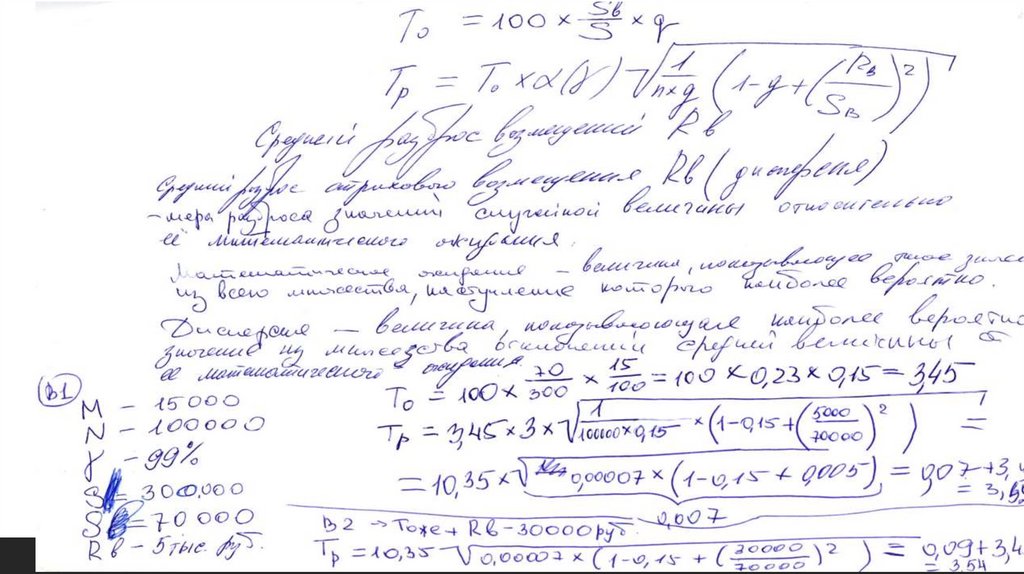 T₀ = 100 × Sв/S × q
Tp = T₀ × α(γ) √(1/(n×q) (1-q+(Rв/Sв)²))
Средний разброс возмещений Rв
Средний разброс страхового возмещения Rв (дисперсия)
- мера разброса значений случайной величины относительно
её математического ожидания.
Математическое ожидание – величина, показывающая такое
из всего множества, наступление которого наиболее вероятно.
Дисперсия – величина, показывающая наиболее вероятно
значение из множества отклонений средней величины от
её математического ожидания.
В1
M – 15000
N – 100000
γ – 99%
S = 300,000
Sв = 70 000
Rв – 5 тыс. руб.
T₀ = 100 × 70/300 × 15/100 = 100 × 0,23 × 0,15 = 3,45
Tp = 3,45 × 3 × √(1/(100000×0,15) × (1-0,15+(5000/70000)²)) =
= 10,35 × √(0,00007 × (1-0,15+0,005)) = 0,07 + 3,4
= 3,5
0,007
В2 → Тоже + Rв – 30000 руб.
Tp = 10,35 √(0,00007 × (1-0,15+(30000/70000)²)) = 0,09 + 3,4
= 3,54